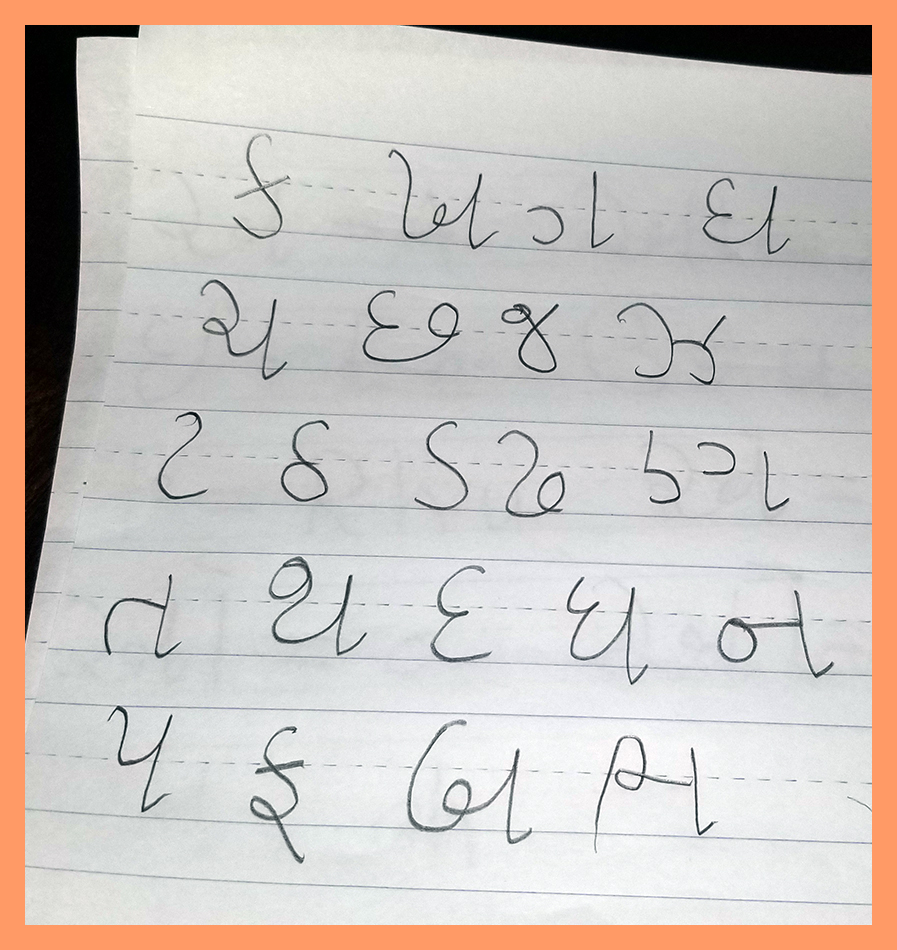 ક ખ ગ ઘ
ચ છ જ ઝ
ટ ઠ ડ ઢ ણ
ત થ દ ધ ન
પ ફ બ ભ